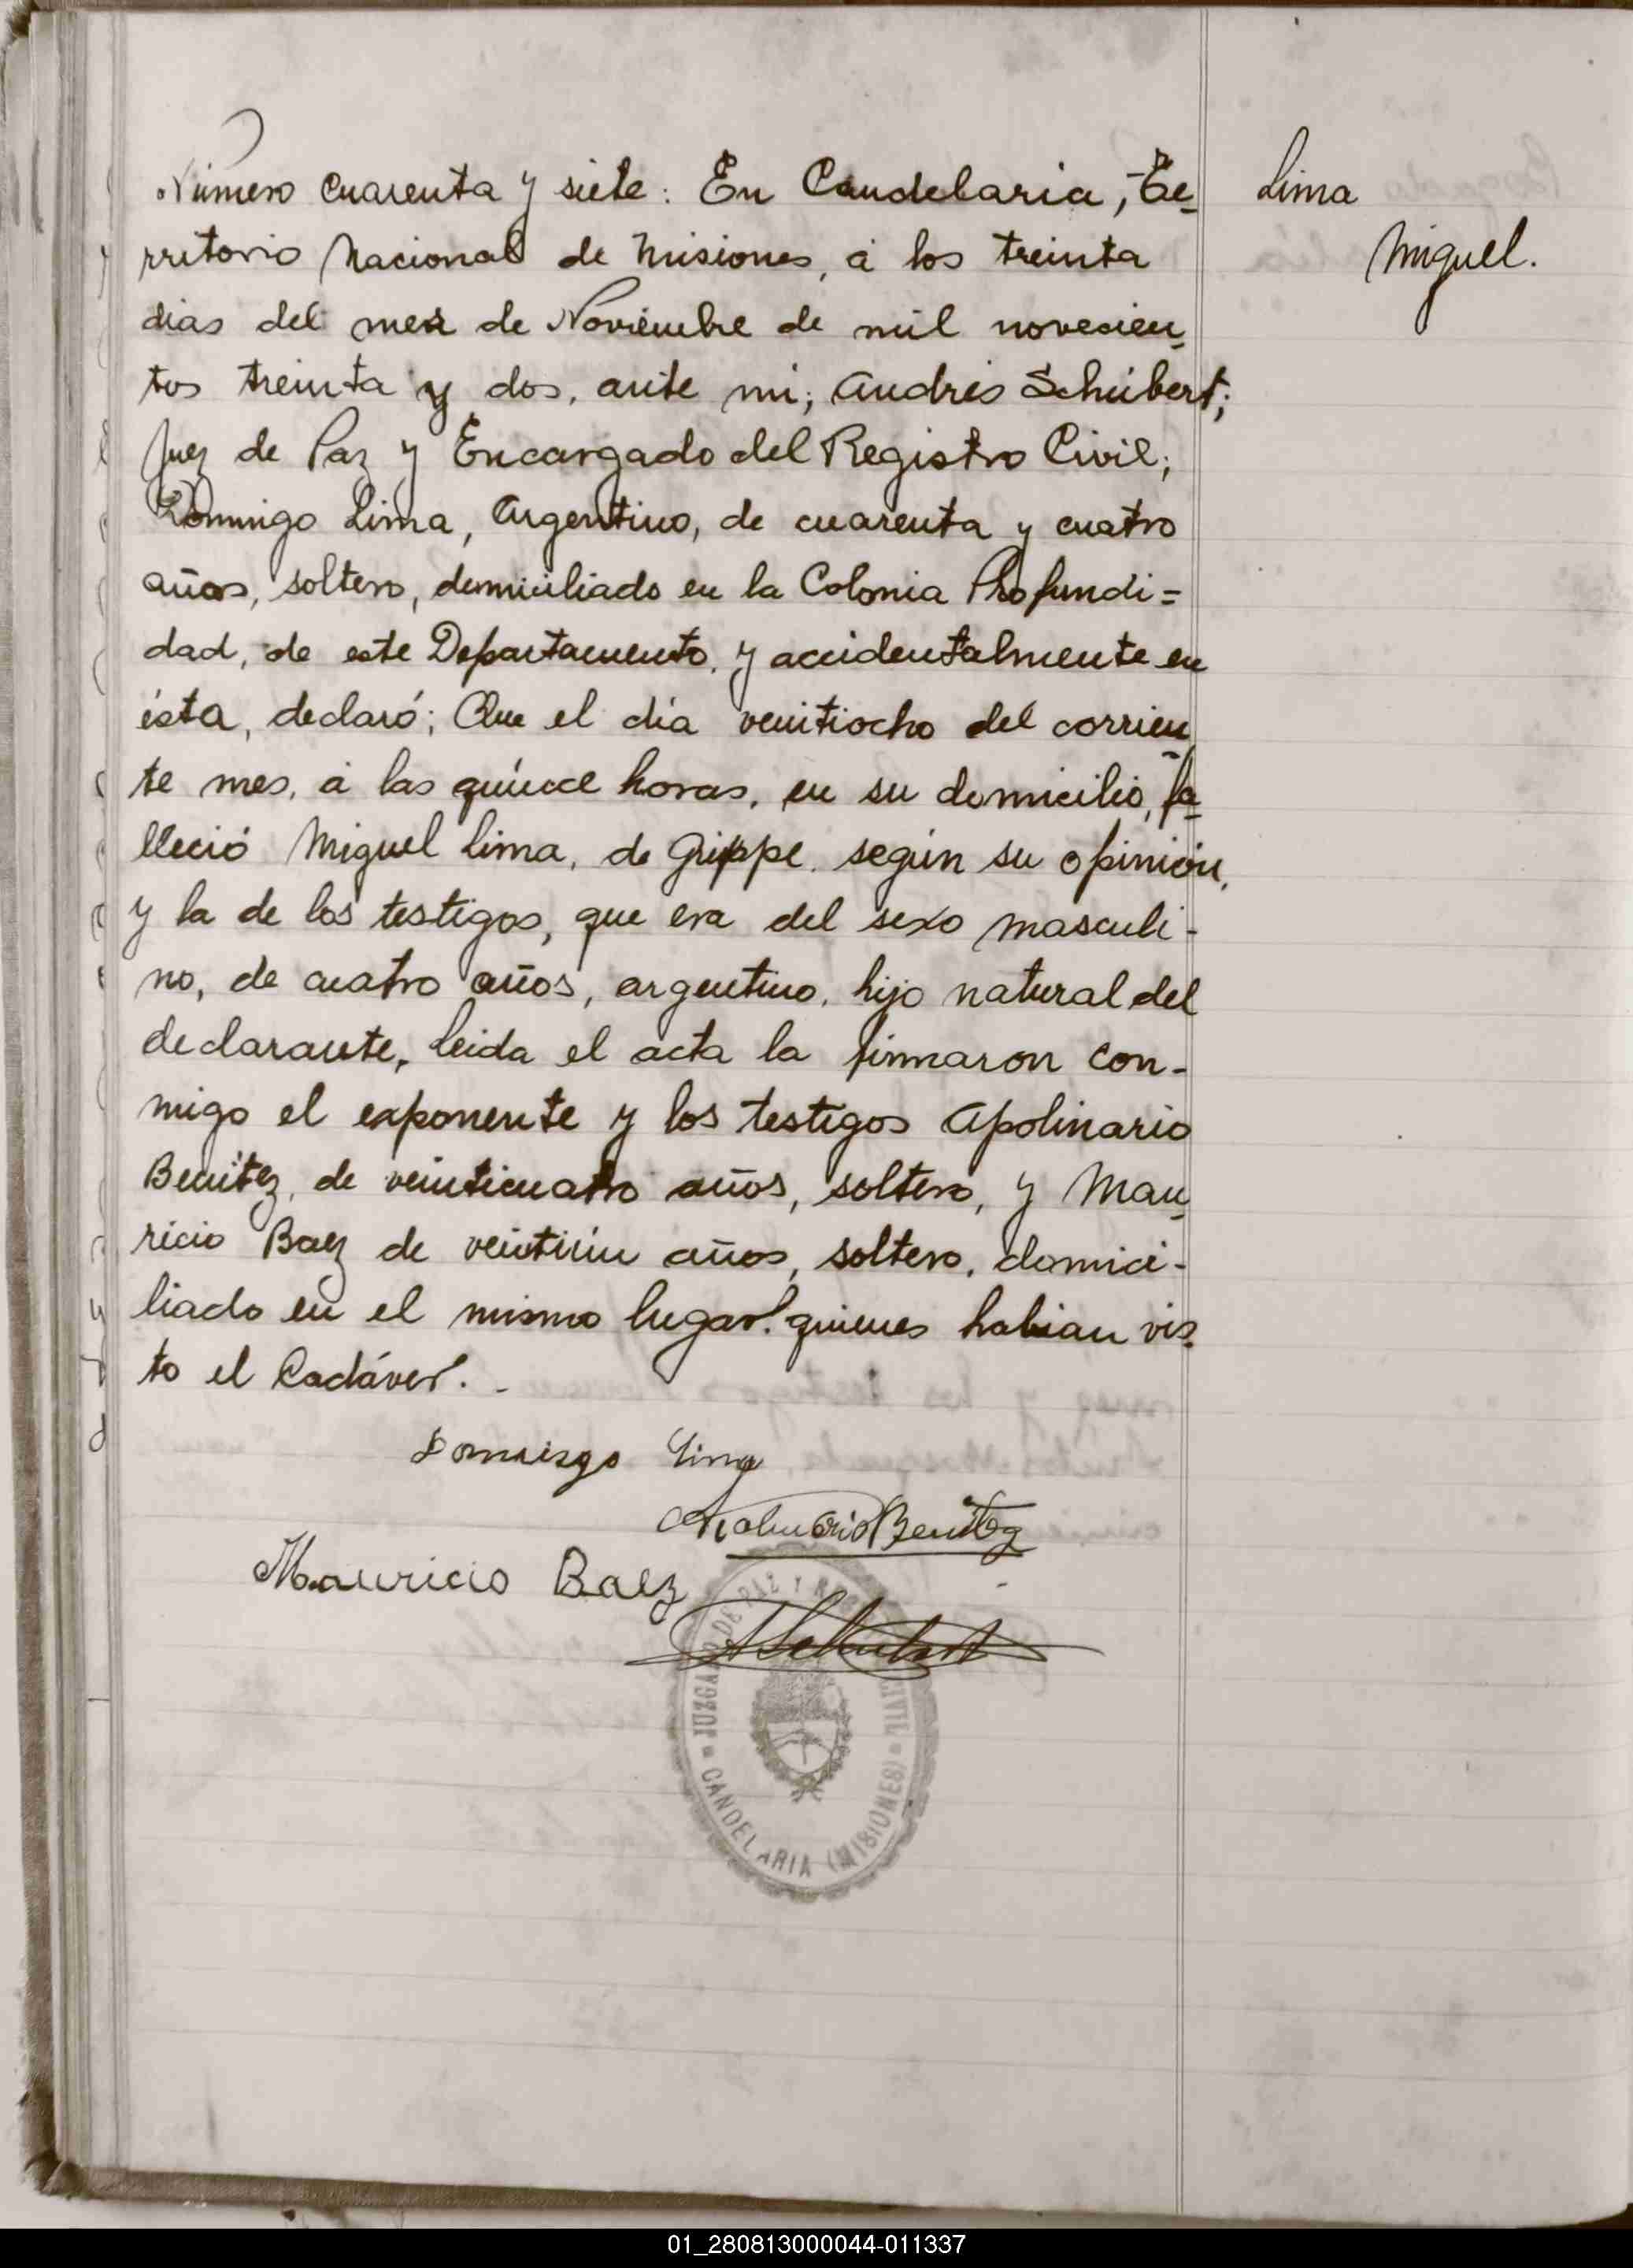 Número cuarenta y siete: En Candelaria, Te-
rritorio Nacional de Misiones, á los treinta
dias del mes de Noviembre de mil novecien-
tos treinta y dos, ante mi; Andrés Schubert;
Juez de Paz y Encargado del Registro Civil;
Domingo Lima, Argentino, de cuarenta y cuatro
años, soltero, domiciliado en la Colonia Profundi=
dad, de este Departamento, y accidentalmente en
ésta, declaró; Que el día veintiocho del corrien-
te mes, á las quince horas, en su domicilio, fa-
lleció Miguel Lima, de Grippe. según su opinión,
y la de los testigos, que era del sexo masculi-
no, de cuatro años, argentino, hijo natural del
declarante, Leida el acta la firmaron con-
migo el exponente y los testigos Apolinario
Benitez, de veinticuatro años, soltero, y Mau-
ricio Baez de veintiún años, soltero, domici-
liado en el mismo lugar. quienes habian vis-
to el Cadáver. -
Lima
Miguel.
Domingo Lima
Apolinario Benitez
Mauricio Baez
ASchubert
JUZGADO DE PAZ Y
CANDELARIA (MISIONES)
01_280813000044-011337